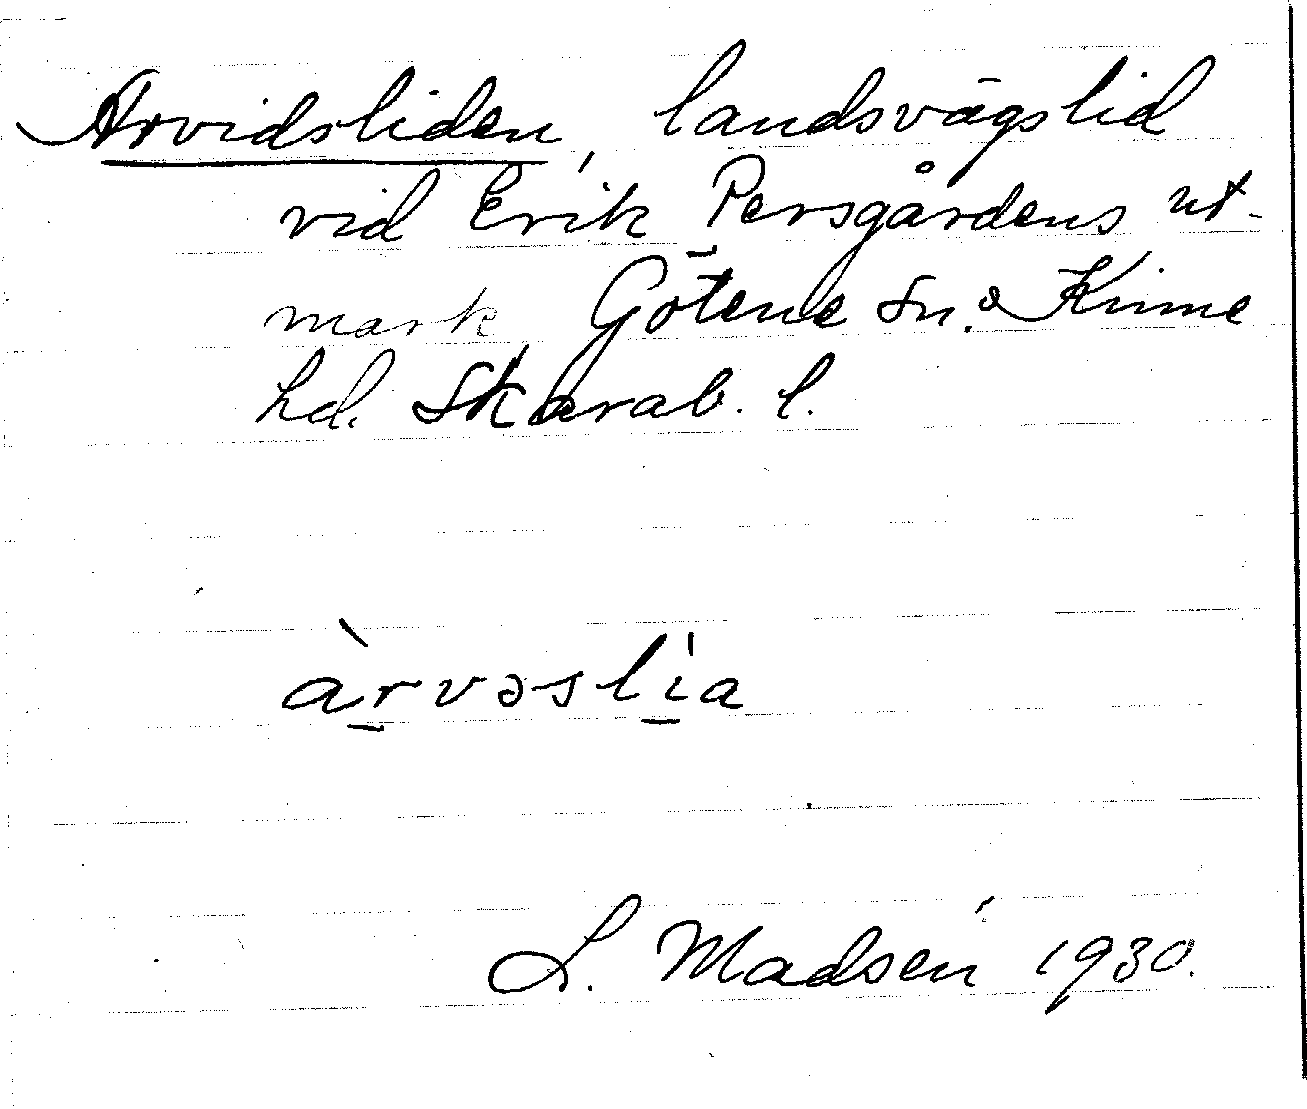 Arvidsliden, landsvägslid
vid Erik Persgårdens ut-
mark Götene sn. o Kinne
hd. Skarab. l.
àrvəslia
L. Madsén 1930.